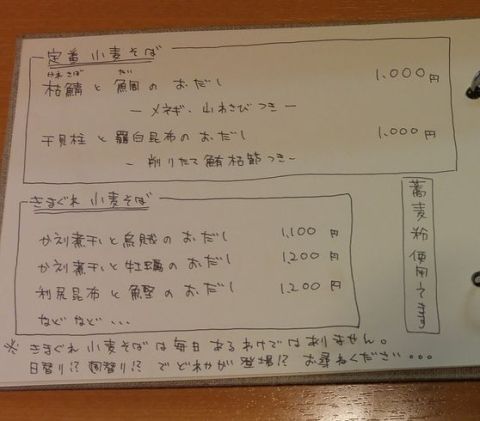 定番 小麦そば
かれさば
たい
枯鯖と鯛のおだし 1,000円
ー メネギ、山わさびつき ー
干貝柱と羅臼昆布のおだし 1,000円
ー 削りたて鮪枯節つき ー
きまぐれ 小麦そば
かえり煮干と烏賊のおだし 1,100円
かえり煮干と牡蠣のおだし 1,200円
利尻昆布と鰹のおだし 1,200円
などなど・・・
蕎麦粉使用してます
※ きまぐれ小麦そばは毎日あるわけではありません。
日替りにでどれかが登場! お尋ねください・・・